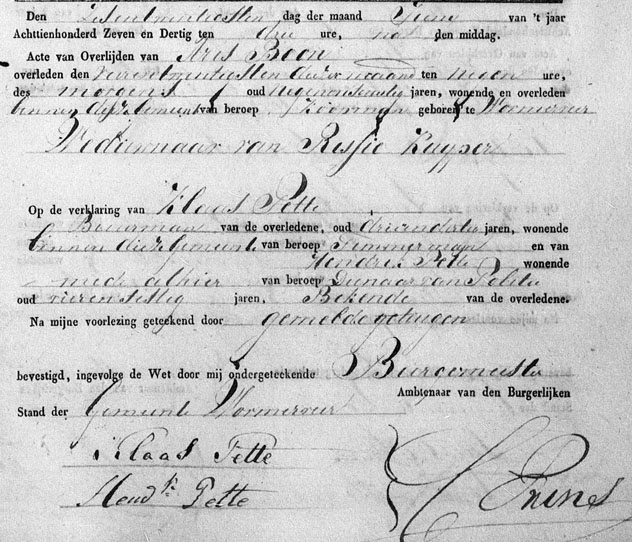 Den Zesentwintigsten dag der maand Juni van 't jaar
Achttienhonderd Zeven en Dertig ten drie ure, na den middag.
Acte van Overlijden van Aris Boon
overleden den vierentwintigsten dezer maand ten negen ure,
des morgens oud negenenzestig jaren, wonende en overleden
binnen deze Gemeente van beroep geboren te Wormerveer
Weduwnaar van Kuyper
Op de verklaring van Klaas Pette
Buurman van de overledene, oud drieendertig jaren, wonende
binnen deze Gemeente van beroep Timmerman en van
Hendrik Pette wonende
mede alhier van beroep Dienaar van Politie
oud vierenzestig jaren, Bekende van de overledene.
Na mijne voorlezing geteekend door gemelde getuigen
bevestigd, ingevolge de Wet door mij ondergeteekende Burgemeester
Ambtenaar van den Burgerlijken
Stand der Gemeente Wormerveer
Klaas Pette
Hendk Pette